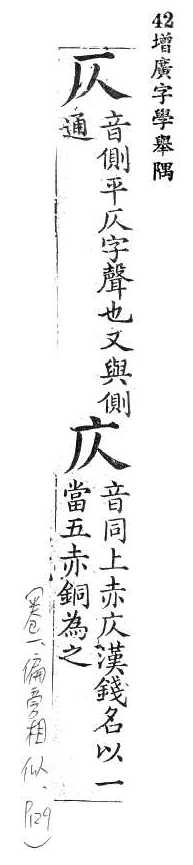 42增廣字學舉隅
仄
音側平仄字聲也文與側
通
庂
音同上赤庂漢錢名以一
當五赤銅為之
(卷一偏旁相似、P129)